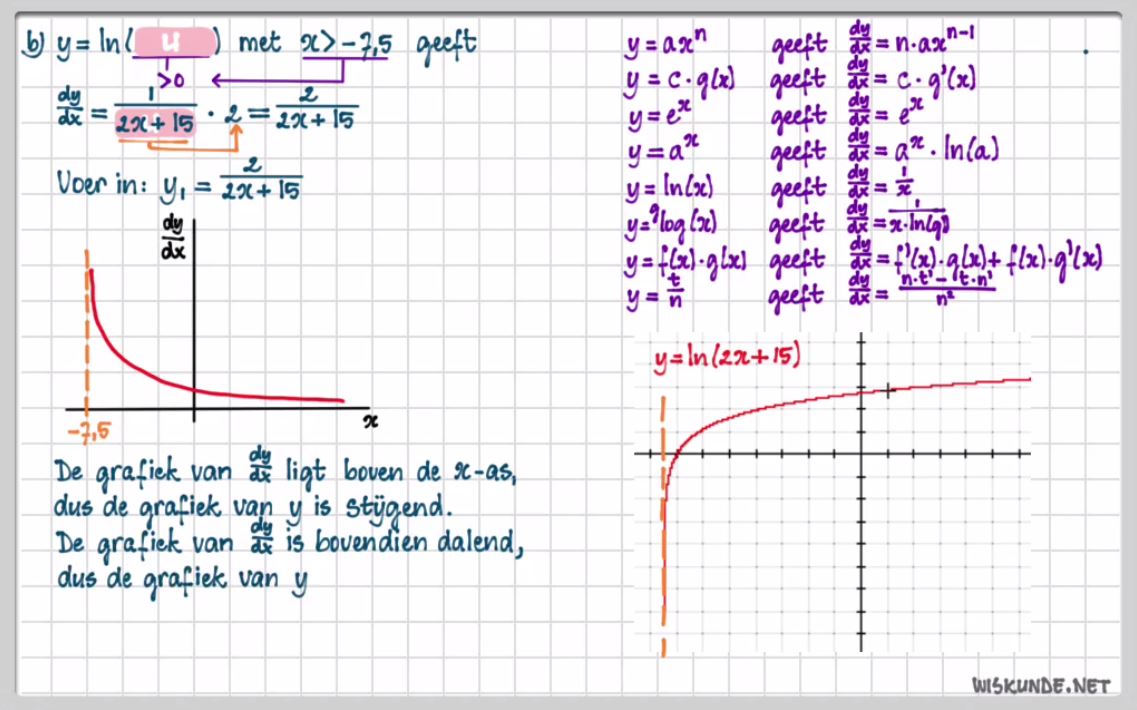 b) y = ln( u ) met x > -7,5 geeft
>0
dy/dx = 1/(2x + 15) · 2 = 2/(2x + 15)
Voer in: y₁ = 2/(2x + 15)
dy/dx
x
-7,5
De grafiek van dy/dx ligt boven de x-as,
dus de grafiek van y is stijgend.
De grafiek van dy/dx is bovendien dalend,
dus de grafiek van y
y = axⁿ geeft dy/dx = n·axⁿ⁻¹
y = c·g(x) geeft dy/dx = c·g'(x)
y = eˣ geeft dy/dx = eˣ
y = aˣ geeft dy/dx = aˣ · ln(a)
y = ln(x) geeft dy/dx = 1/x
y = ᵍlog(x) geeft dy/dx = 1/(x·ln(g))
y = f(x)·g(x) geeft dy/dx = f'(x)·g(x) + f(x)·g'(x)
y = t/n geeft dy/dx = (n·t' - t·n')/n²
y = ln(2x + 15)
WISKUNDE.NET